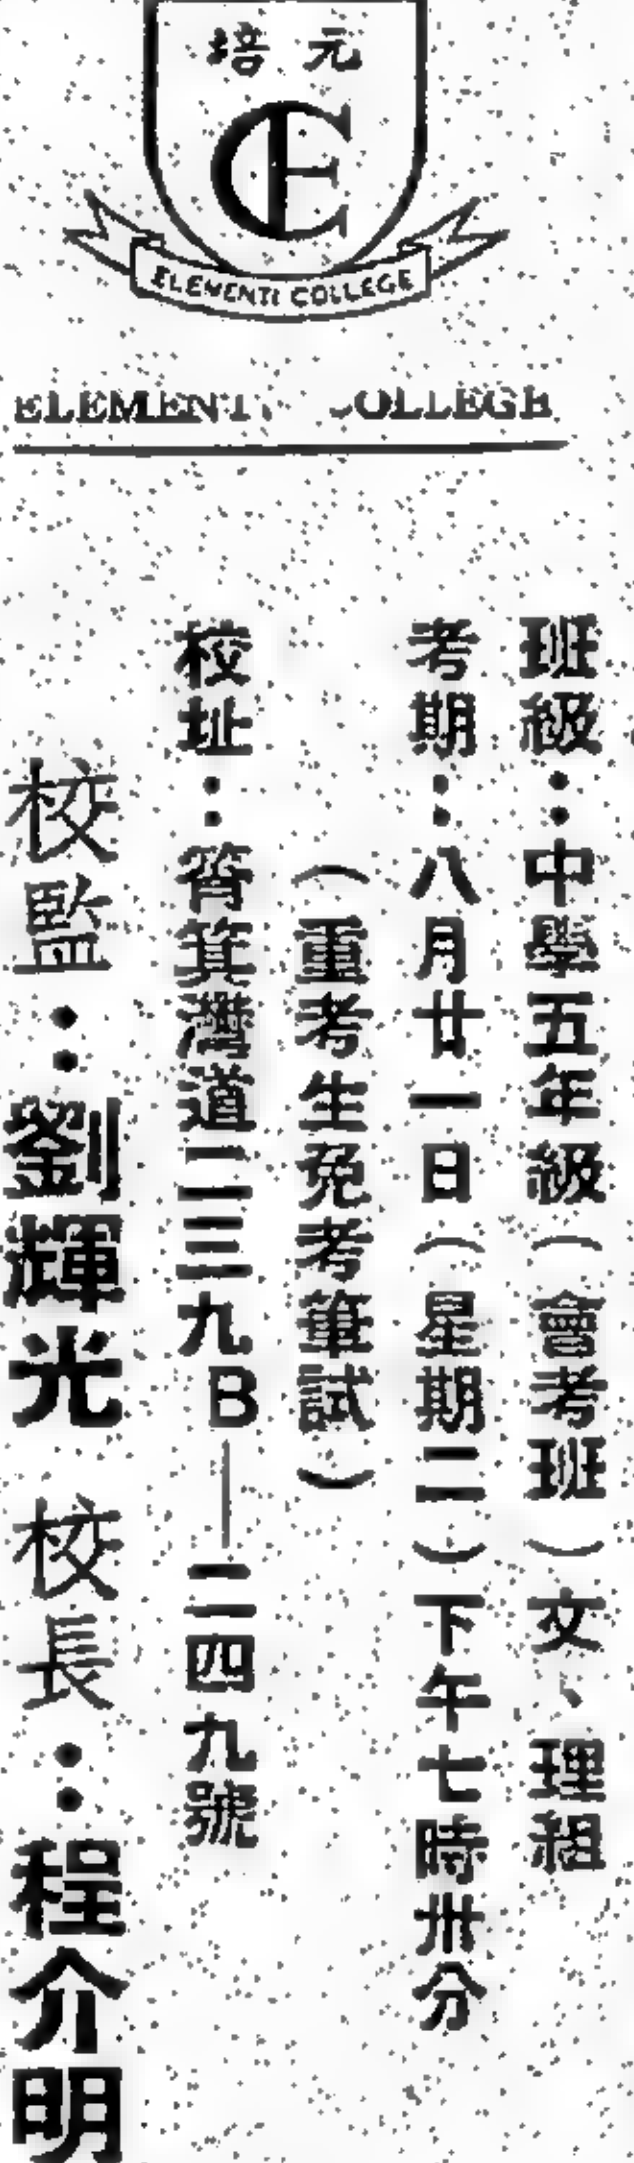 培元
CE
ELEMENTI COLLEGE
ELEMENTI COLLEGE
班級：中學五年級（會考班）文、理組
考期：八月廿一日（星期二）下午七時卅分
（重考生免考筆試）
校址：筲箕灣道二三九B—二四九號
校監：劉輝光 校長：程介明